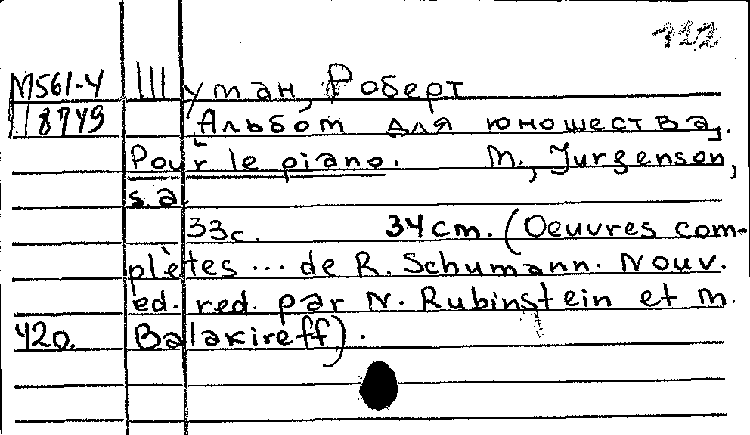 М561-4 Шуман, Роберт
118749 Альбом для юношества,
Pour le piano. M., Jurgenson,
s.a.
33с. 34cm. (Oeuvres com-
plètes ... de R. Schumann. Nouv.
ed. red. par N. Rubinstein et M.
420 Balakireff).